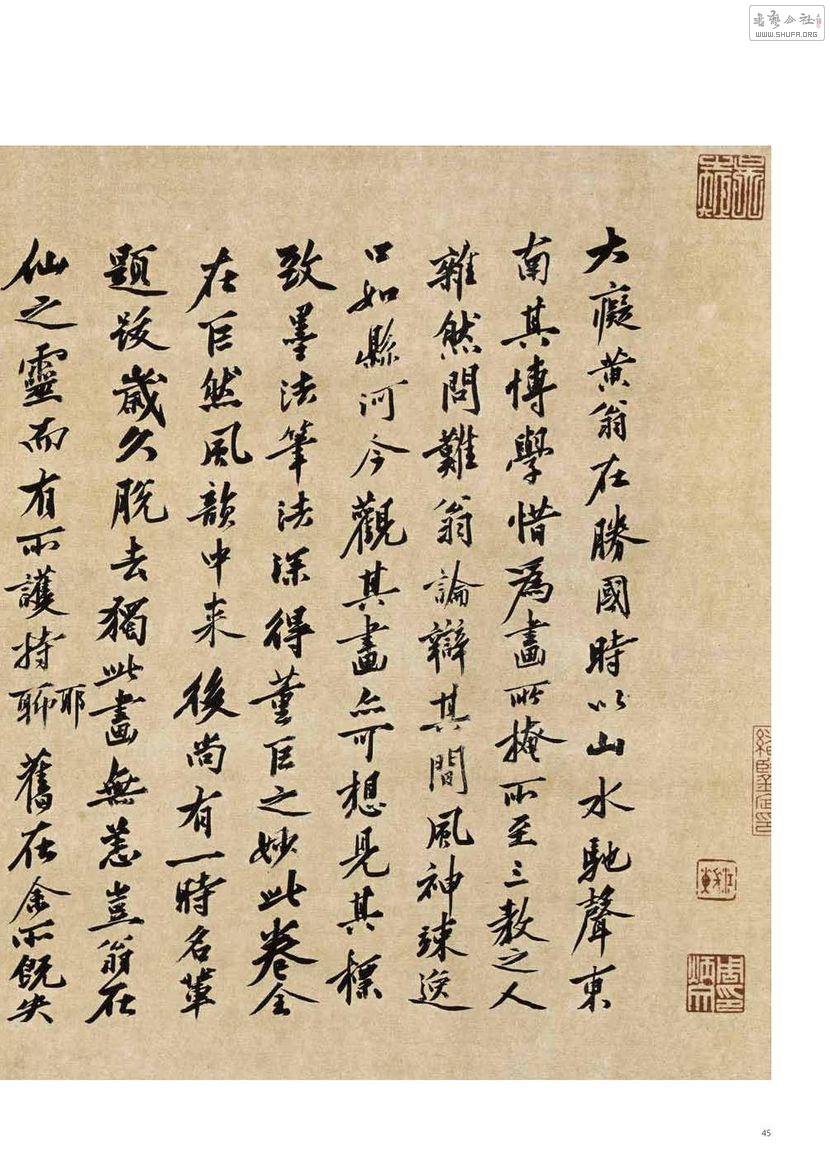 大癡黃翁在勝國時以山水馳聲東
南其博學惜爲畫所掩所至三教之人
雜然問難翁論辯其間風神竦逸
口如縣河今觀其畫亦可想見其標
致墨法筆法深得董巨之妙此卷全
在巨然風韻中来後尚有一時名輩
題跋歲久脫去獨此畫無恙豈翁在
仙之靈而有所護持耶
聊舊在余所既失
書藝公社
WWW.SHUFA.ORG
45